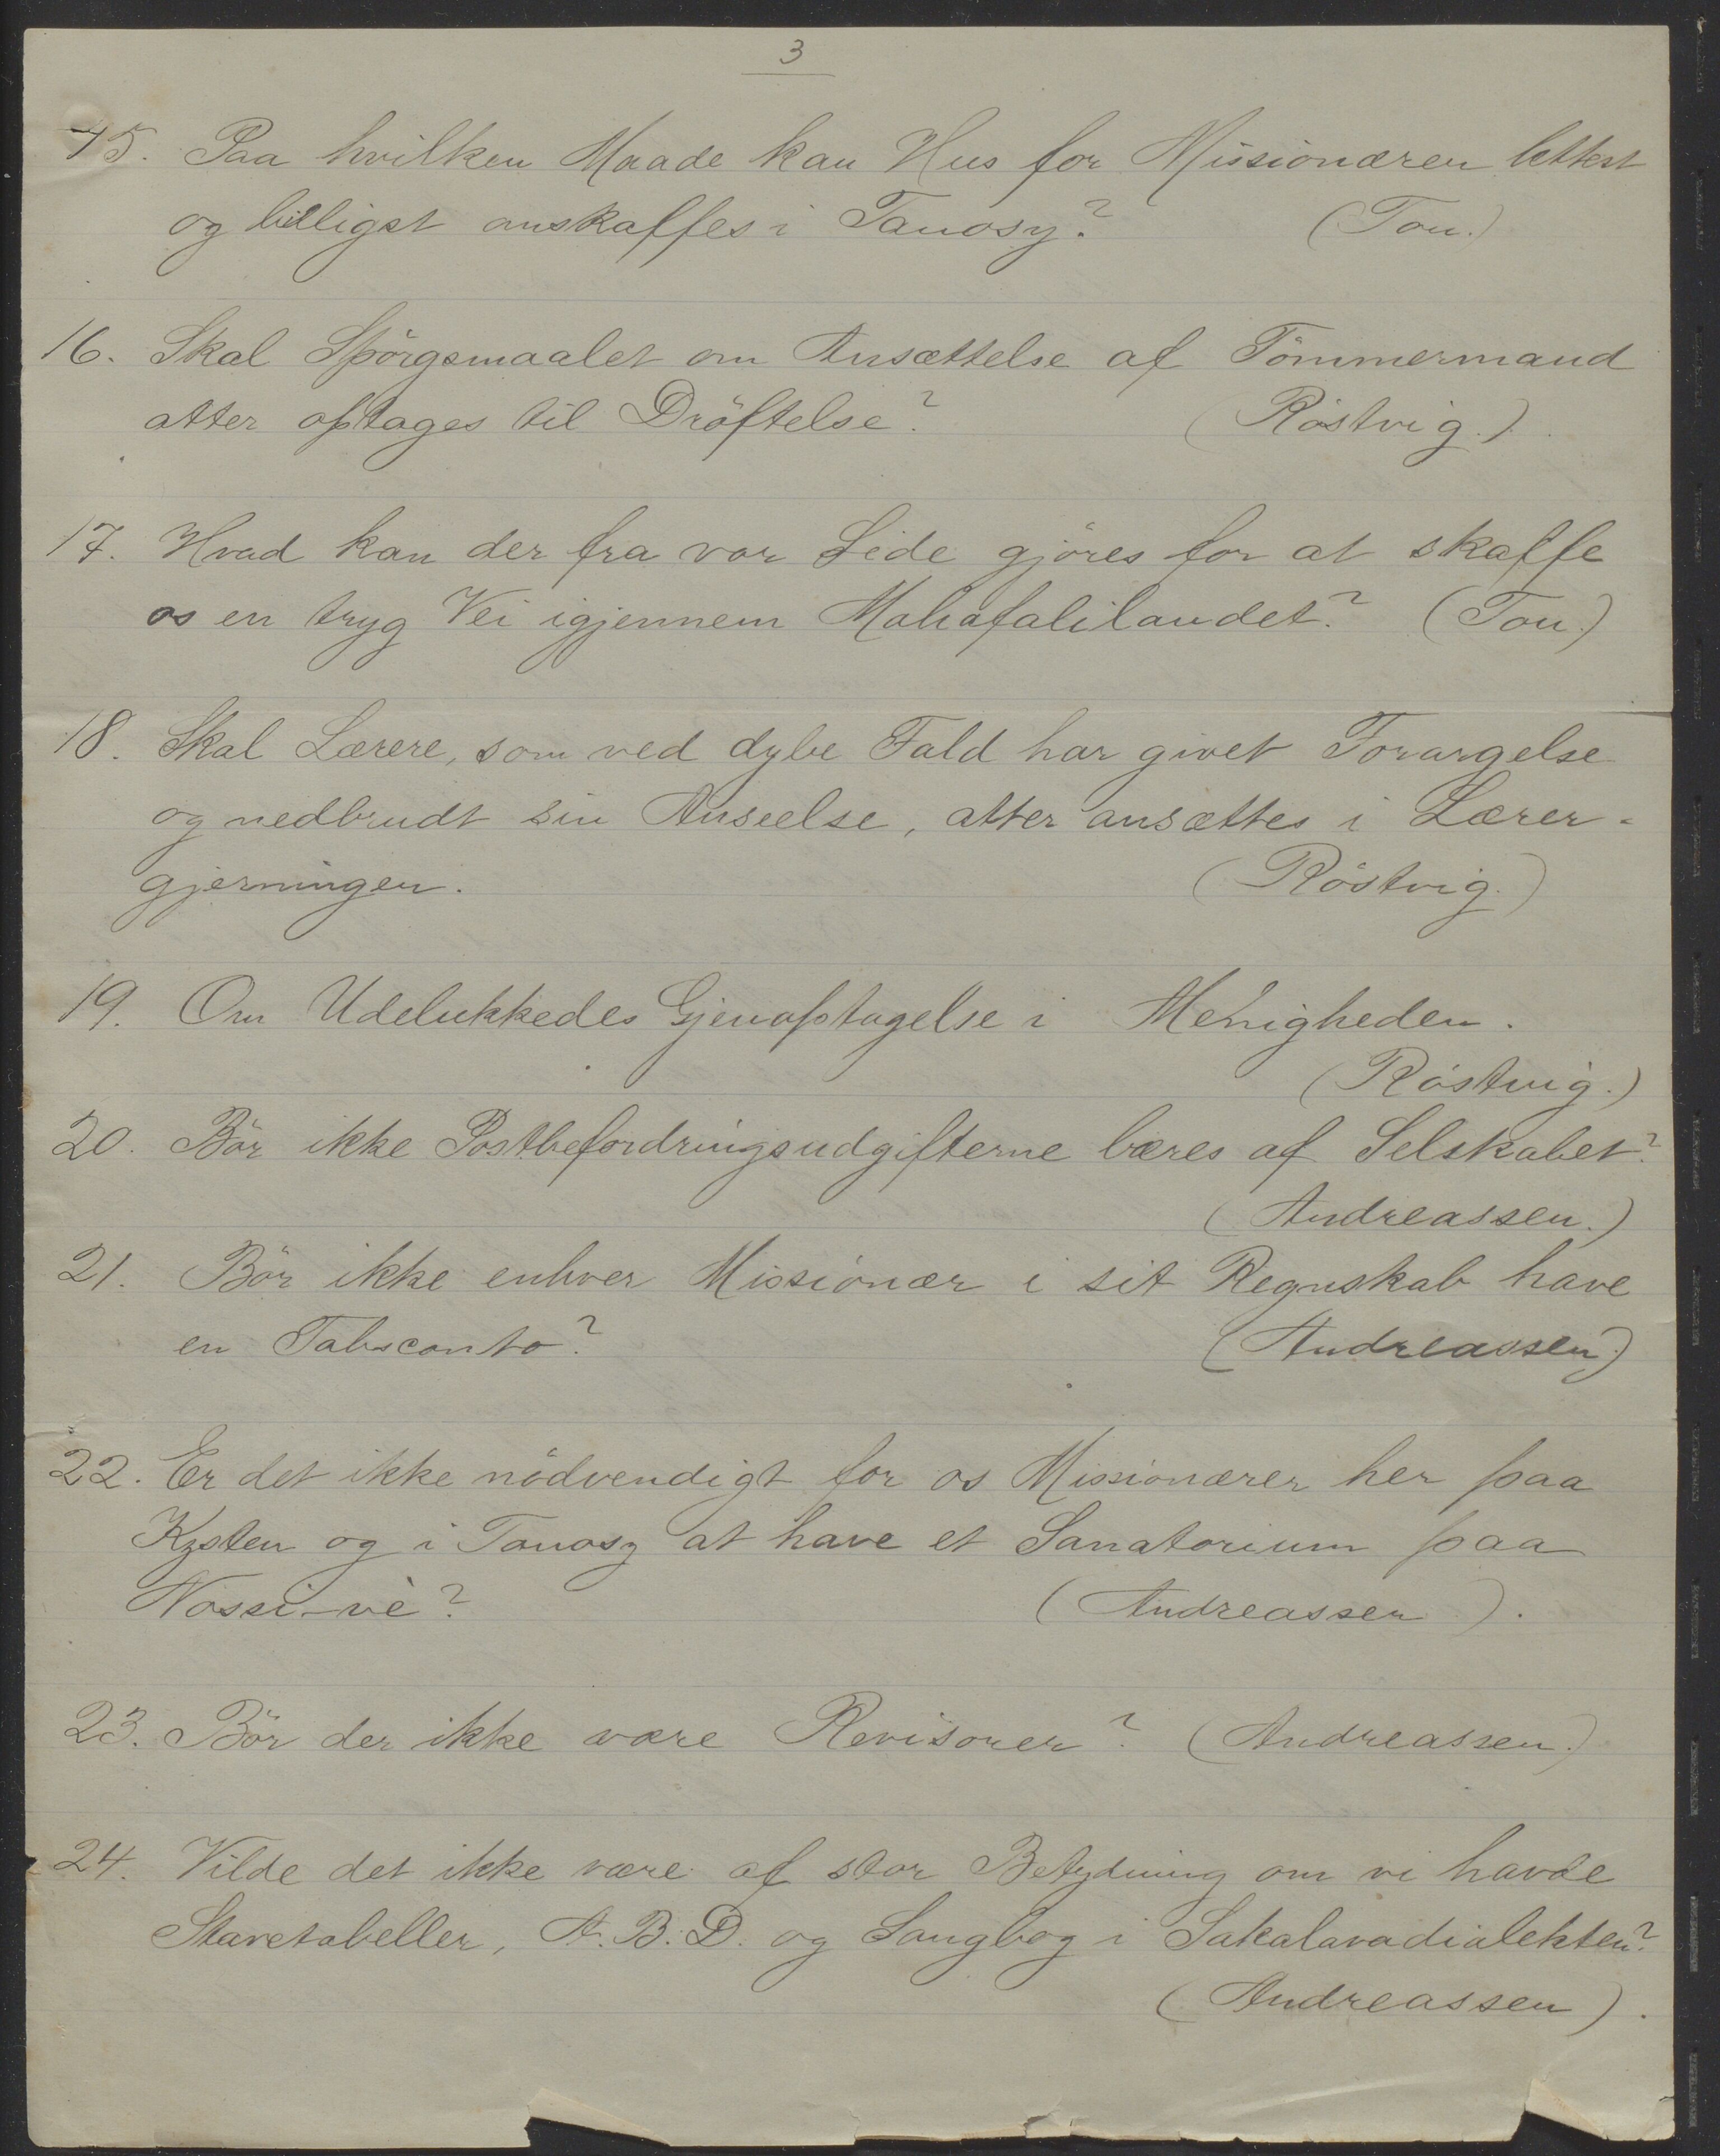 3
15. Paa hvilken Maade kan Hus for Missionæren lettest
og billigst anskaffes i Tanosy? (Tou.)
16. Skal Spörgsmaalet om Ansættelse af Tömmermand
atter optages til Dröftelse? (Röstvig.)
17. Hvad kan der fra vor Side gjöres for at skaffe
os en tryg Vei igjennem Mahafalilandet? (Tou.)
18. Skal Lærere, som ved dybe Fald har givet Forargelse
og nedbrudt sin Anseelse, atter ansættes i Lærer-
gjerningen. (Röstvig.)
19. Om Udelukkedes Gjenoptagelse i Menigheden.
(Röstvig.)
20. Bör ikke Postbefordringsudgifterne bæres af Selskabet?
(Andreassen.)
21. Bör ikke enhver Missionær i sit Regnskab have
en Tabsconto? (Andreassen.)
22. Er det ikke nödvendigt for os Missionærer her paa
Kysten og i Tanosy at have et Sanatorium paa
Nossi-vè? (Andreassen).
23. Bör der ikke være Revisorer? (Andreassen.)
24. Vilde det ikke være af stor Betydning om vi havde
Stavetabeller, A.B.D. og Sangbog i Sakalavadialekten?
(Andreassen).